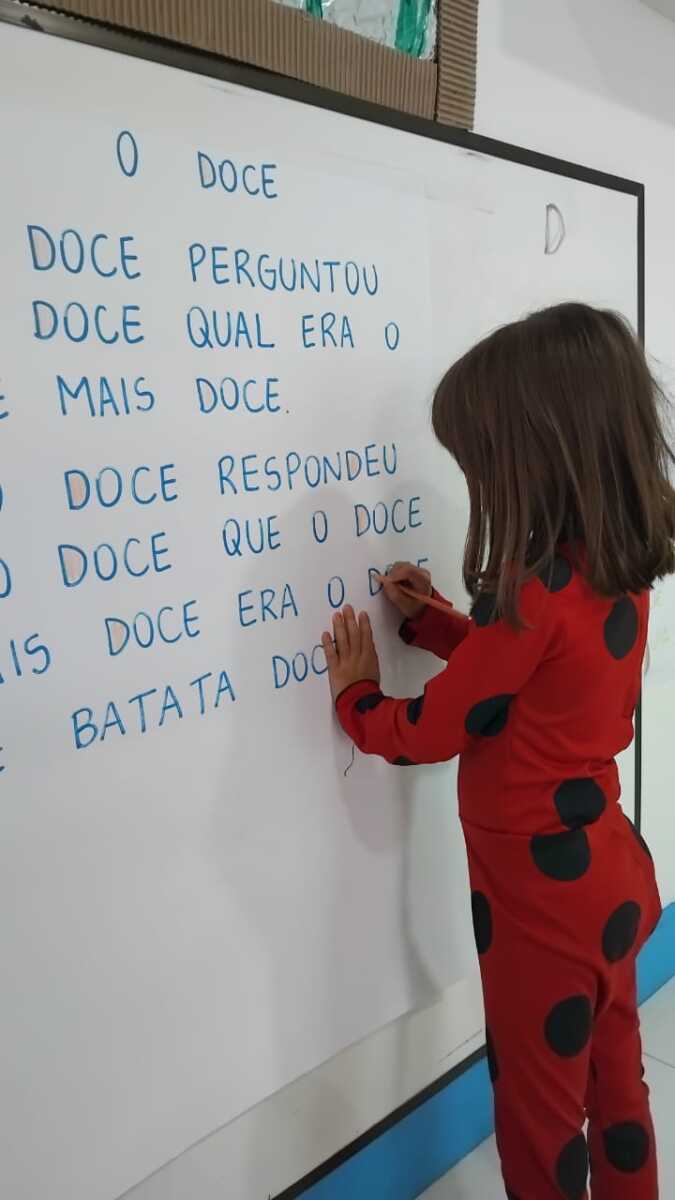 O DOCE
D
DOCE PERGUNTOU
DOCE QUAL ERA O
E MAIS DOCE.
O DOCE RESPONDEU
O DOCE QUE O DOCE
AIS DOCE ERA O DOCE
E BATATA DOC